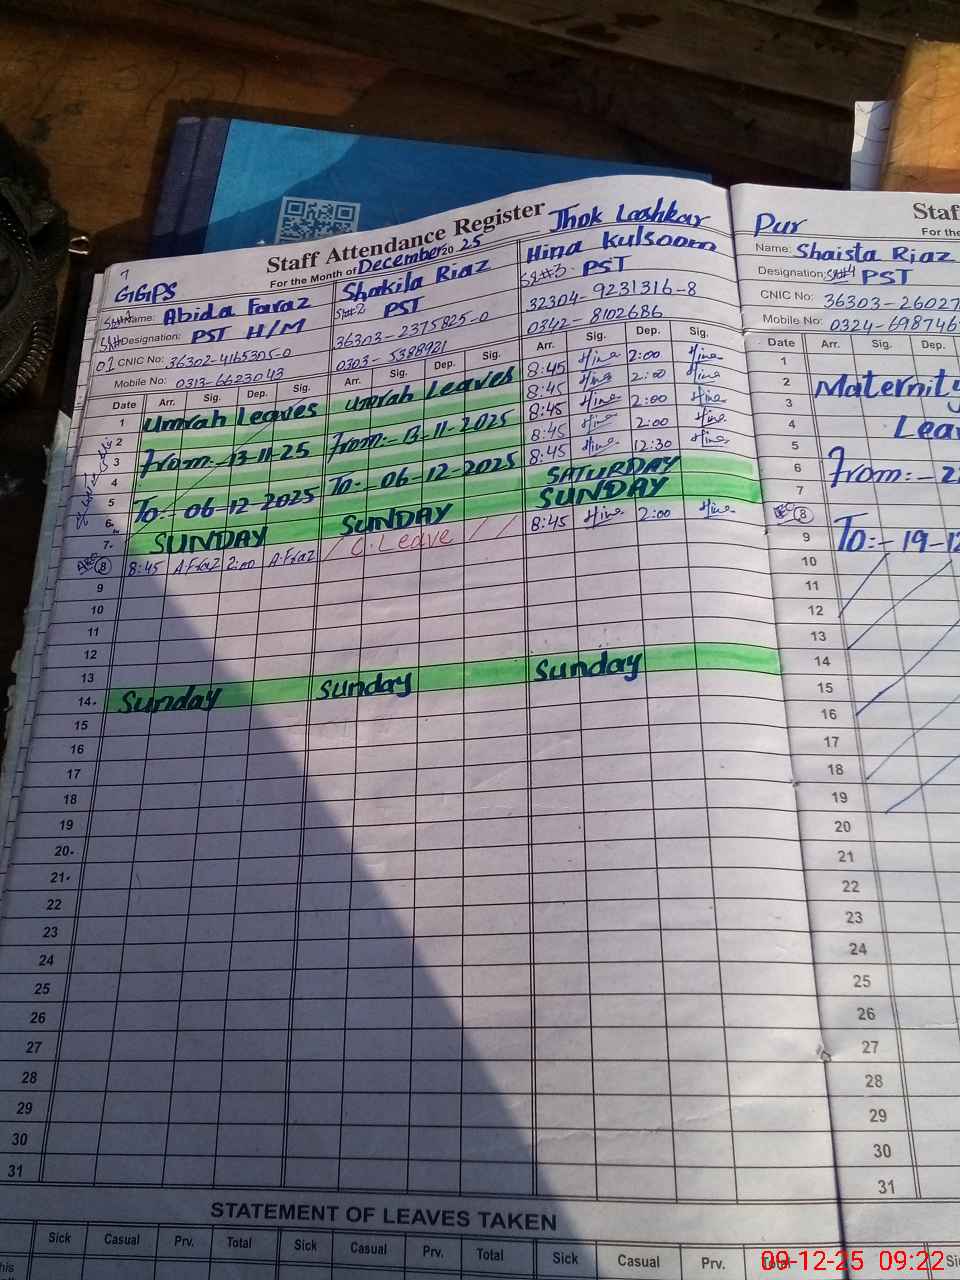 Staff Attendance Register
Thok Lashkar
For the Month of December 20 25
GGPS
Sr#1 Name: Abida Faraz
Designation: PST H/M
01 CNIC No: 36302-4165305-0
Mobile No: 0313-6623043
Shakila Riaz
Sr#2 PST
36303-2375825-0
0303-5388921
Hina Kulsoom
Sr#3 PST
32304-9231316-8
0342-8102686
Date Arr. Sig. Dep. Sig. Arr. Sig. Dep. Sig. Arr. Sig. Dep. Sig.
1 Umrah Leaves Umrah Leaves 8:45 Hina 2:00 Hina
2 8:45 Hina 2:00 Hina
3 From:-13-11-25 From:-13-11-2025 8:45 Hina 2:00 Hina
4 8:45 Hina 2:00 Hina
5 To:-06-12-2025 To:-06-12-2025 8:45 Hina 12:30 Hina
6 SATURDAY
7 SUNDAY SUNDAY SUNDAY
8 8:45 A.Fraz 2:00 A.Fraz C.Leave 8:45 Hina 2:00 Hina
9
10
11
12
13
14 Sunday Sunday Sunday
15
16
17
18
19
20
21
22
23
24
25
26
27
28
29
30
31
STATEMENT OF LEAVES TAKEN
Sick Casual Prv. Total Sick Casual Prv. Total Sick Casual Prv. Total
Pur
Name: Shaista Riaz
Designation: Sr#4 PST
CNIC No: 36303-26027
Mobile No: 0324-698746
Date Arr. Sig. Dep.
1
2 Maternity
3
4 Lea
5
6 From:-2
7
8
9 To:-19-12
10
11
12
13
14
15
16
17
18
19
20
21
22
23
24
25
26
27
28
29
30
31
09-12-25 09:22